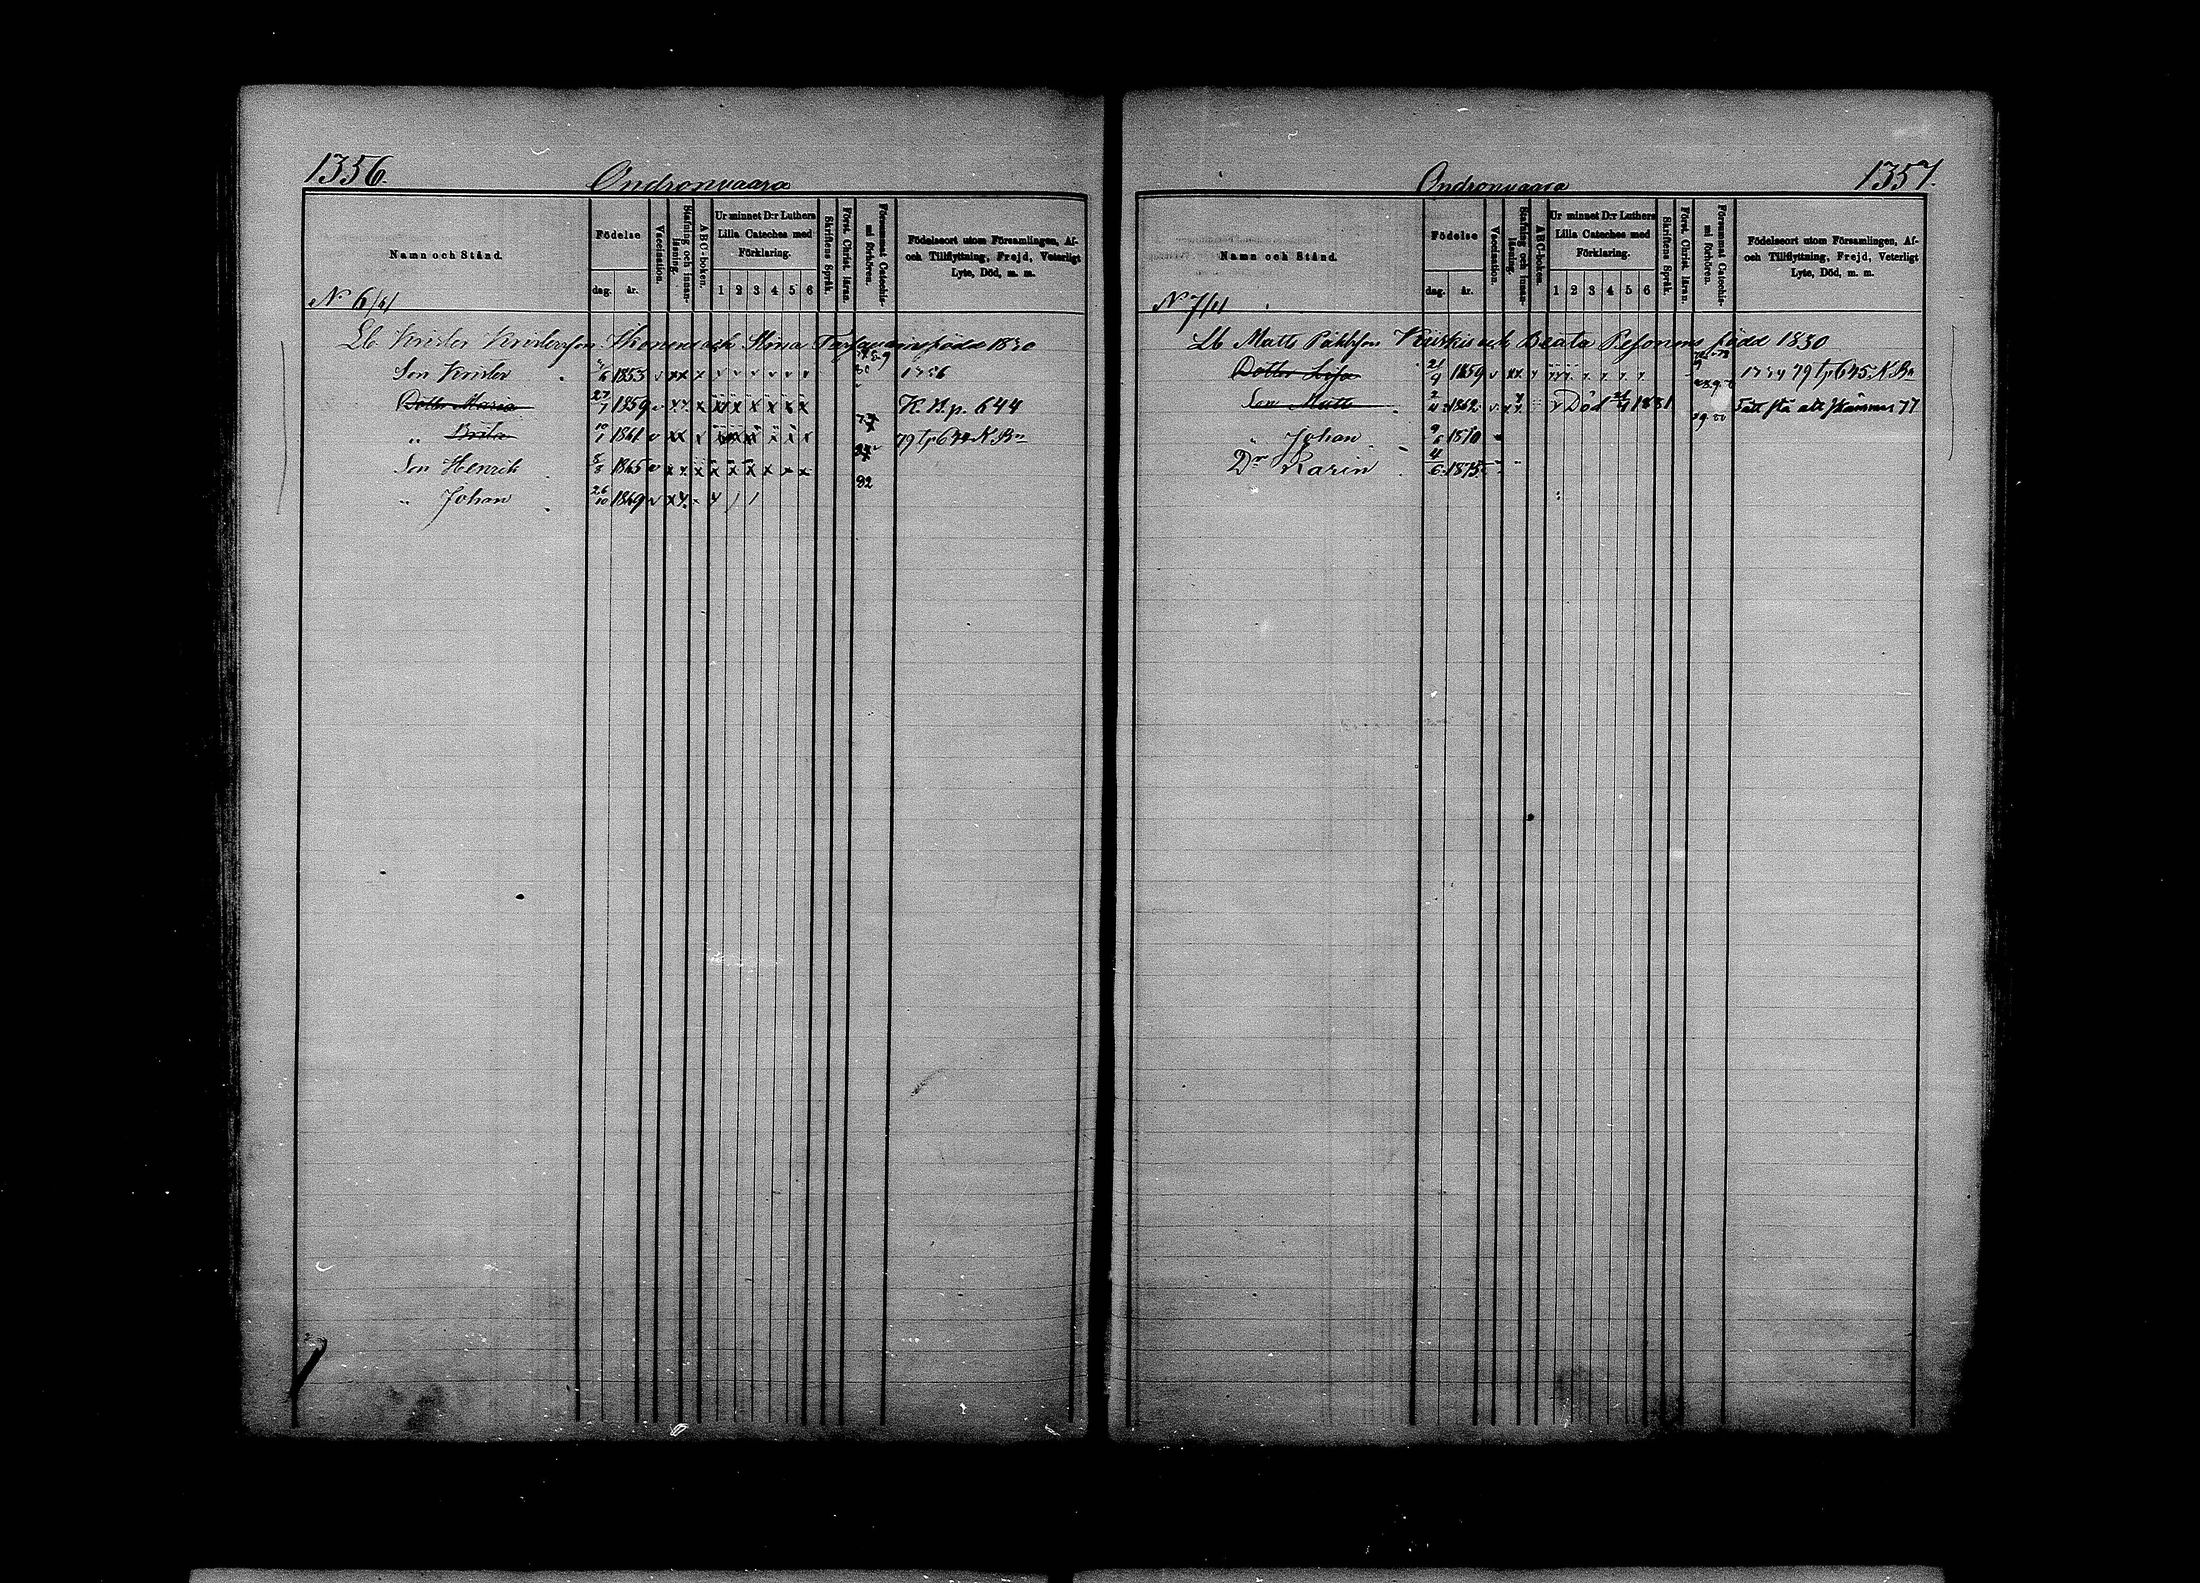 1356.
Ondronvaara
Namn och Stånd.
Födelse
dag. år.
Vaccination.
Stafning och innanläsning.
ABC-boken.
Ur minnet D:r Luthers
Lilla Cateches med
Förklaring.
1 2 3 4 5 6
Skriftens Språk.
Först. Christ. läran.
Försummat Catechismi förhören.
Födelseort utom Församlingen, Af-
och Tillflyttning, Frejd, Veterligt
Lyte, Död, m. m.
No 6
Lb Krister Kristersson Ikonen och Anna född 1830
Son Krister 1853
Dotter Maria 27/7 1859 K. B. p. 644
" Brita 10/1 1861 79 K. Bn
Son Henrik 1865
" Johan 26/10 1869 82
1357.
Ondronvaara
Namn och Stånd.
Födelse
dag. år.
Vaccination.
Stafning och innanläsning.
ABC-boken.
Ur minnet D:r Luthers
Lilla Cateches med
Förklaring.
1 2 3 4 5 6
Skriftens Språk.
Först. Christ. läran.
Försummat Catechismi förhören.
Födelseort utom Församlingen, Af-
och Tillflyttning, Frejd, Veterligt
Lyte, Död, m. m.
No 7
Lb Matts Påhlsson och Beata Pesonen född 1830
Dotter Lisa 21/9 1859 79 645 K Bn
Son Matts 1862 Död 1881 77
" Johan 9/6 1870
Dr Karin 4/6 1875